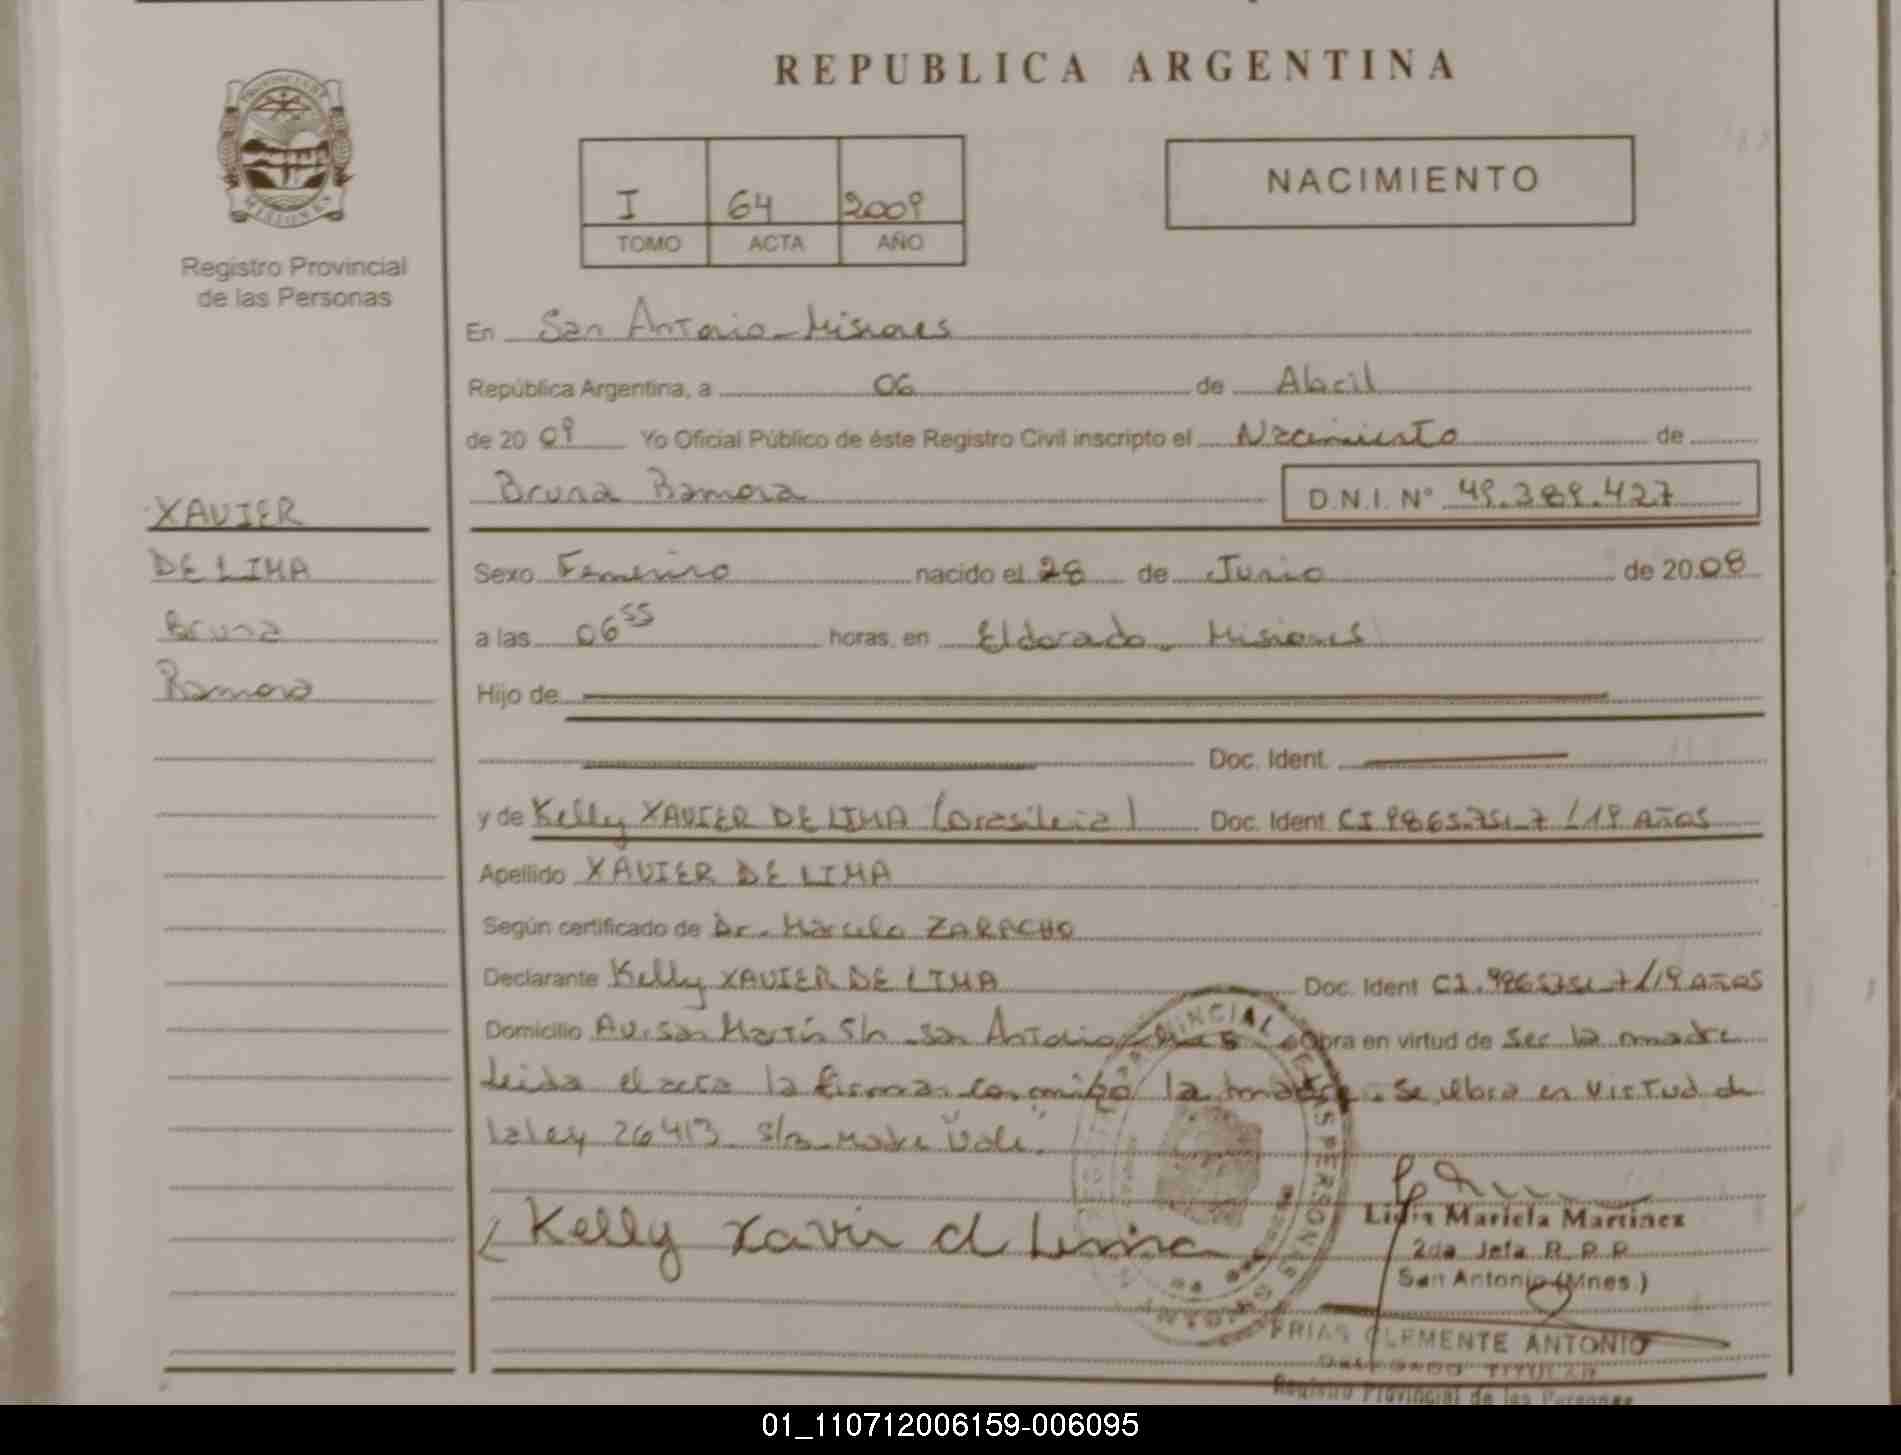 REPUBLICA ARGENTINA
PROVINCIA DE
MISIONES
Registro Provincial
de las Personas
I 64 2009
TOMO ACTA AÑO
NACIMIENTO
En San Antonio - Misiones
República Argentina, a 06 de Abril
de 20 09 Yo Oficial Público de éste Registro Civil inscripto el Nacimiento de
Bruna Ramona D.N.I. N° 49.389.427
XAVIER
DE LIMA
Bruna
Ramona
Sexo Femenino nacido el 28 de Junio de 20 08
a las 06 55 horas, en Eldorado - Misiones
Hijo de
Doc. Ident.
y de Kelly XAVIER DE LIMA (brasileña) Doc. Ident. CI 9865751-7 / 19 Años
Apellido XAVIER DE LIMA
Según certificado de Dr. Marcelo ZARACHO
Declarante Kelly XAVIER DE LIMA Doc. Ident CI. 9865751-7/19 Años
Domicilio Av. San Martín S/n - San Antonio Obra en virtud de Ser la madre
Leida el acta la firman conmigo la madre. Se labra en virtud de
la ley 26413 S/R Madre Vale".
Kelly Xavier d Lima
Lidia Mariela Martinez
2da Jefa R. P. P.
San Antonio (Mnes.)
FRIAS CLEMENTE ANTONIO
DELEGADO TITULAR
Registro Provincial de las Personas
01_110712006159-006095